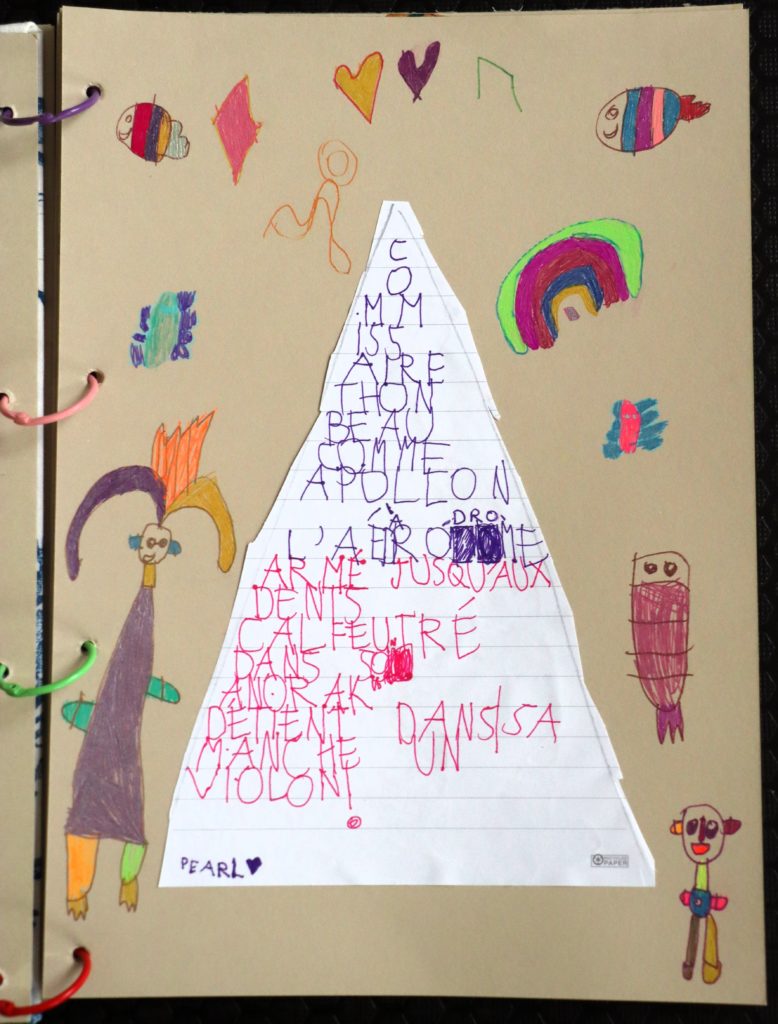 C
O
MM
ISS
AIRE
THON
BEAU
COMME
APOLLEON
À DRO
L'AÉROME
ARMÉ JUSQU'AUX
DENTS
CALFEUTRÉ
DANS SON
ANORAK
DÉTIENT DANS SA
MANCHE UN
VIOLON
PEARL
PAPER